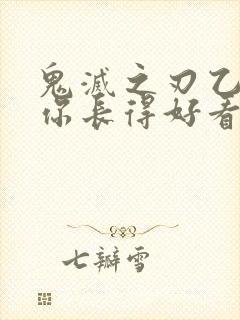 鬼滅之刃乙
你長得好看
七瓣雪